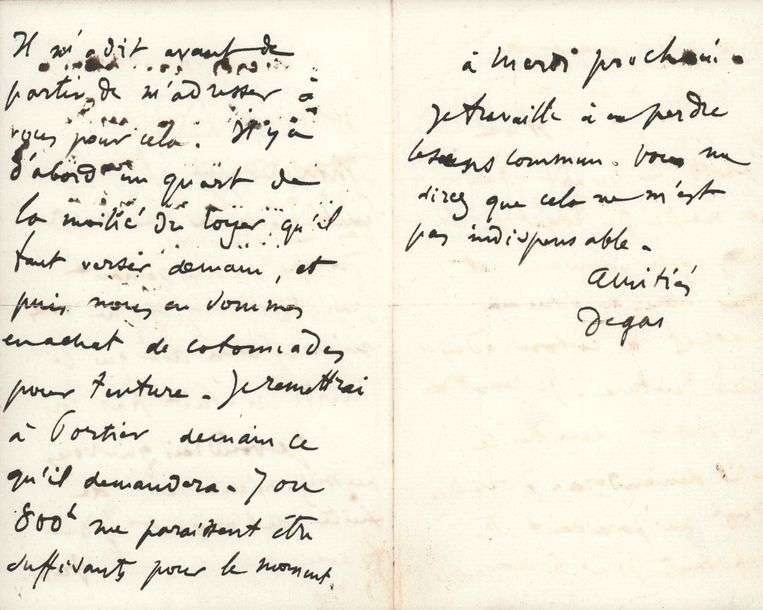 Il m'a dit avant de
partir de m'adresser à
vous pour cela. Il y a
d'abord un quart de
la moitié du loyer qu'il
faut verser demain, et
puis nous en sommes
en achat de cotonnades
pour tenture. Je remettrai
à Portier demain ce
qu'il demandera. 7 ou
800 f me paraissent être
suffisants pour le moment.
à mardi prochain.
Je travaille à en perdre
le sens commun. Vous me
direz que cela ne m'est
pas indispensable.
Amitiés
Degas